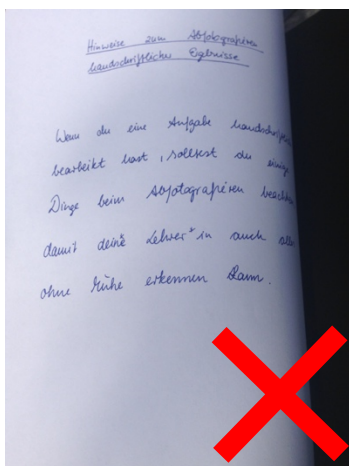 Hinweise zum Abfotografieren
handschriftlicher Ergebnisse
Wenn du eine Aufgabe handschriftlich
bearbeitet hast, solltest du einige
Dinge beim Abfotografieren beachten
damit deine Lehrer*in auch alles
ohne Mühe erkennen kann.